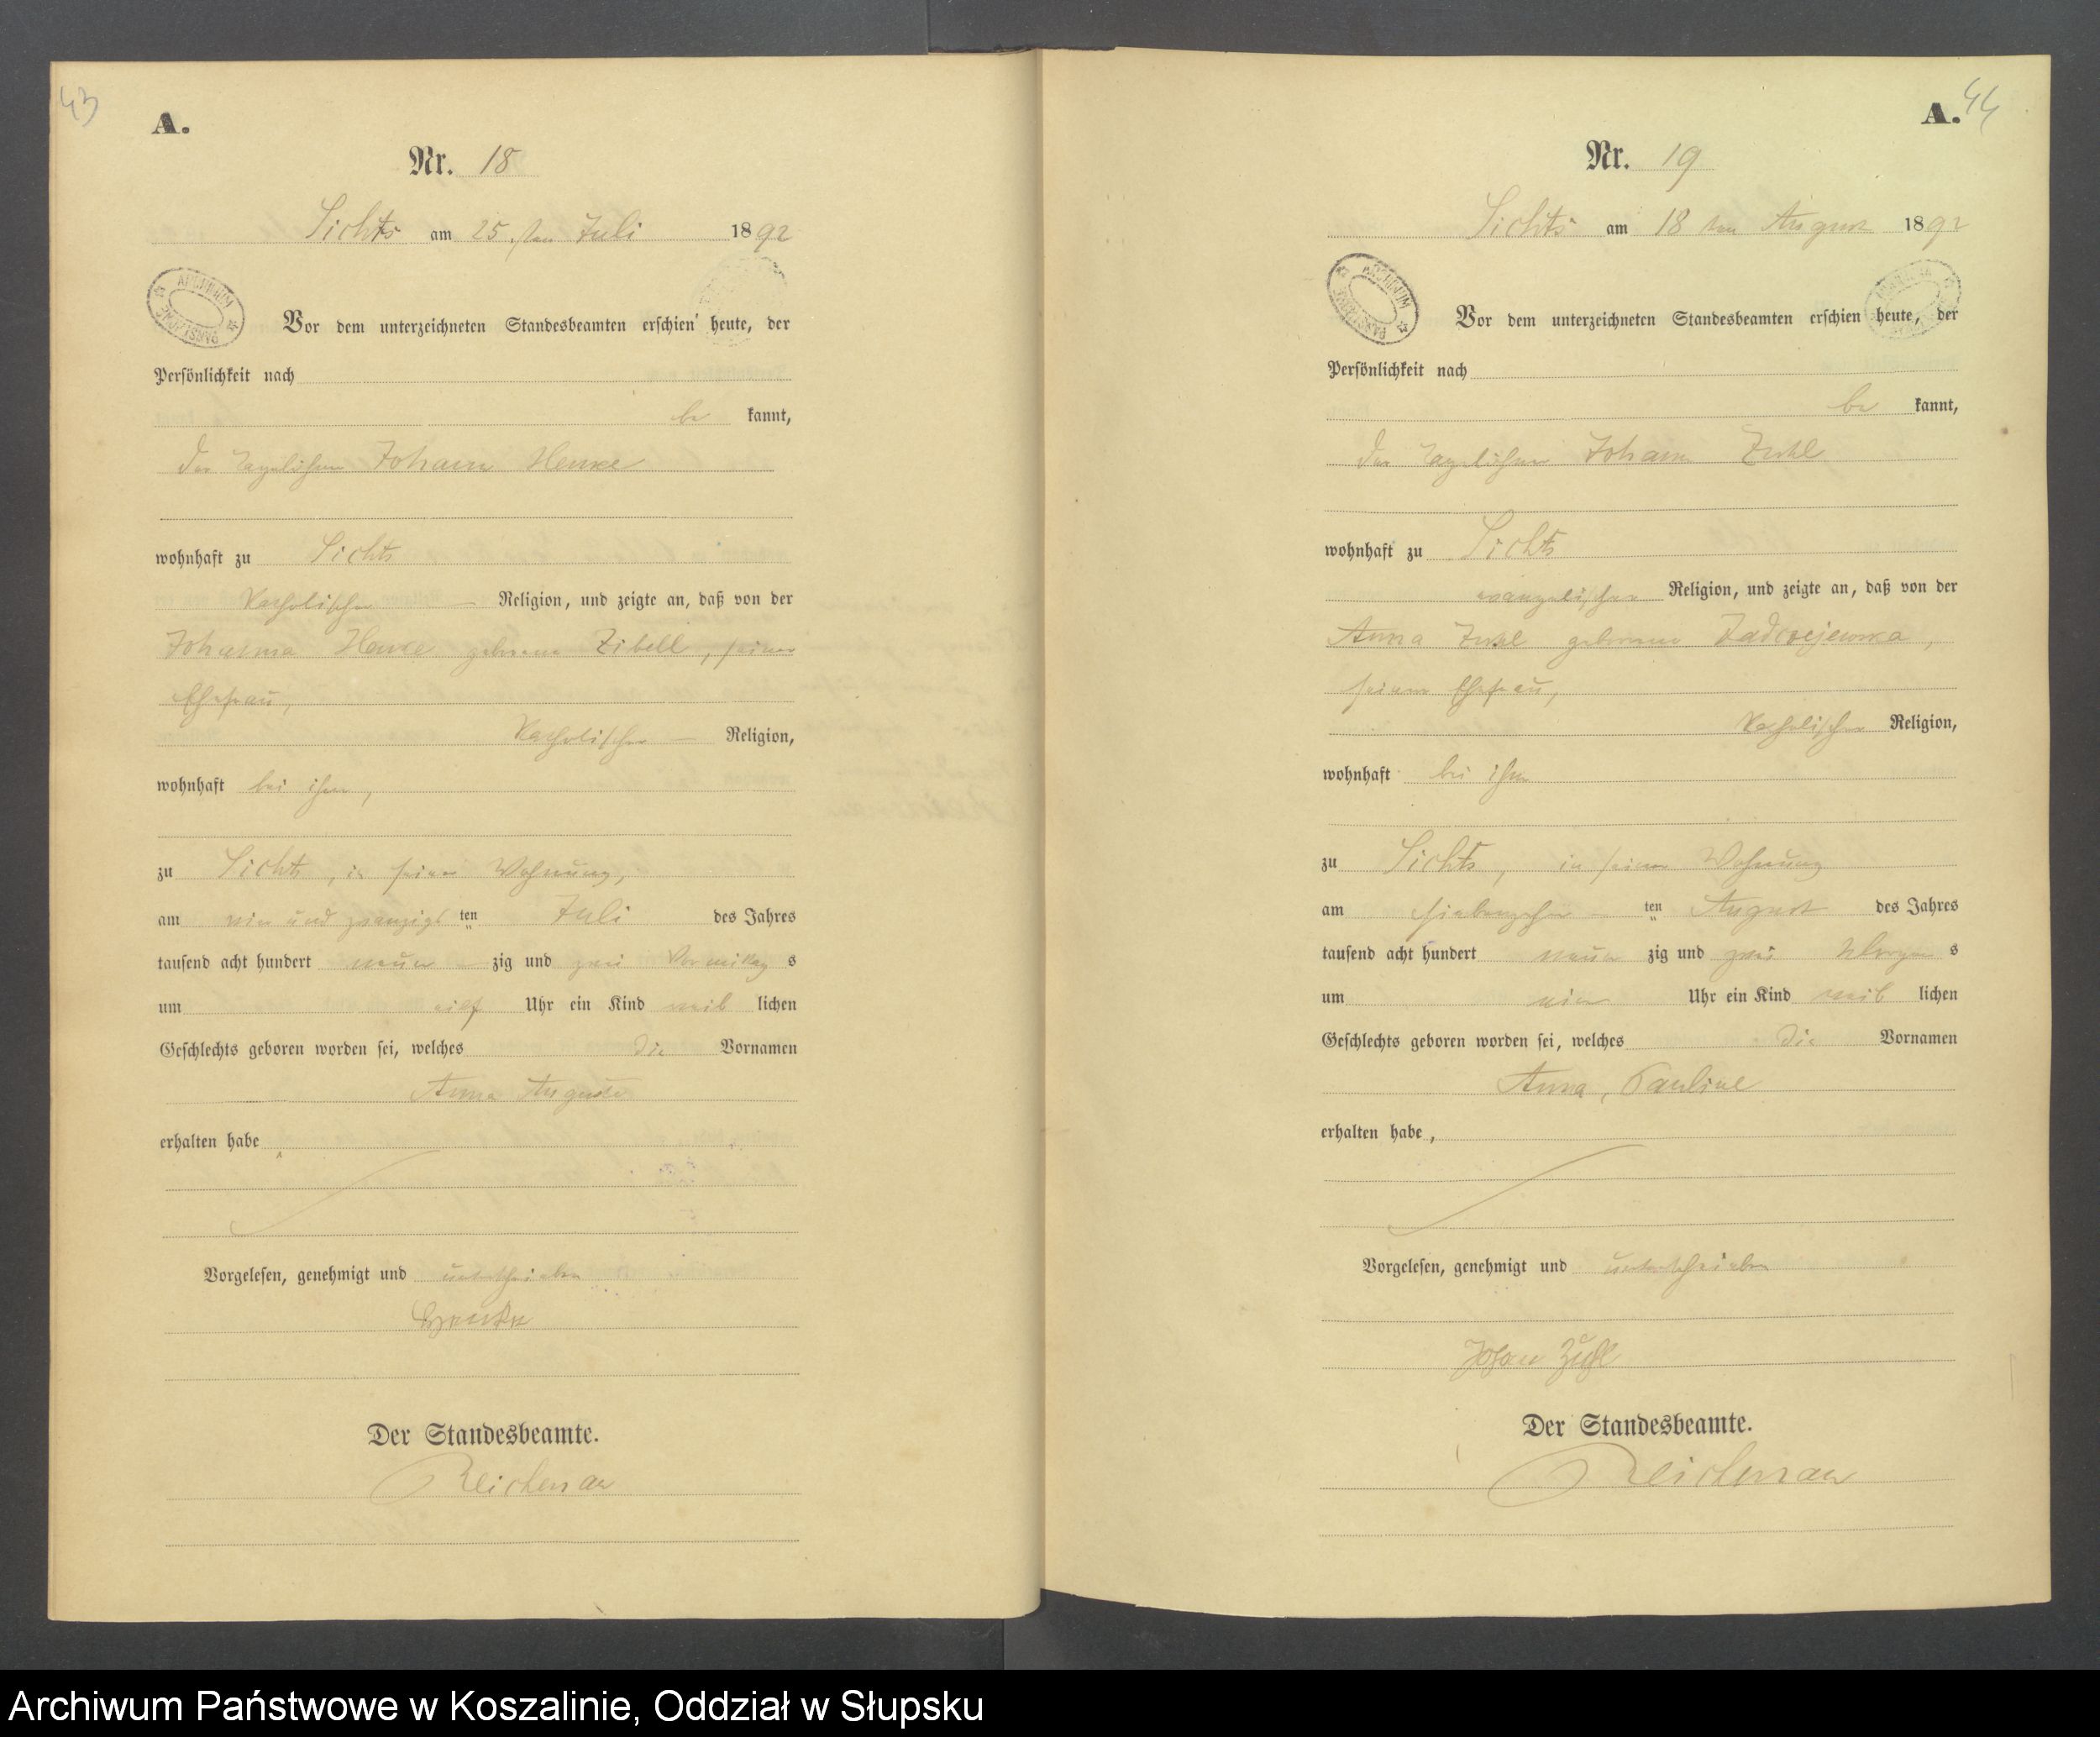 43
A.
Nr. 18
Sichts am 25 ten Juli 1892
ARCHIWUM PAŃSTWOWE
Vor dem unterzeichneten Standesbeamten erschien heute, der
Persönlichkeit nach
be kannt,
der Tagelöhner Johann Henke
wohnhaft zu Sichts
katholischer Religion, und zeigte an, daß von der
Johanna Henke geborene Zibell, seiner
Ehefrau,
katholischer Religion,
wohnhaft bei ihm,
zu Sichts, in seiner Wohnung,
am vier und zwanzigs ten Juli des Jahres
tausend acht hundert neun zig und zwei Vormittag s
um elf Uhr ein Kind weib lichen
Geschlechts geboren worden sei, welches die Vornamen
Anna Auguste
erhalten habe
Vorgelesen, genehmigt und unterschrieben
Henke
Der Standesbeamte.
Reichenau
44
A.
Nr. 19
Sichts am 18 ten August 1892
ARCHIWUM PAŃSTWOWE
Vor dem unterzeichneten Standesbeamten erschien heute, der
Persönlichkeit nach
be kannt,
der Tagelöhner Johann
wohnhaft zu Sichts
evangelischer Religion, und zeigte an, daß von der
Anna geborene
seiner Ehefrau,
katholischer Religion,
wohnhaft bei ihm
zu Sichts, in seiner Wohnung
am siebenzehn ten August des Jahres
tausend acht hundert neun zig und zwei Morgen s
um vier Uhr ein Kind weib lichen
Geschlechts geboren worden sei, welches die Vornamen
Anna, Pauline
erhalten habe,
Vorgelesen, genehmigt und unterschrieben
Johan Zühl
Der Standesbeamte.
Reichenau
Archiwum Państwowe w Koszalinie, Oddział w Słupsku